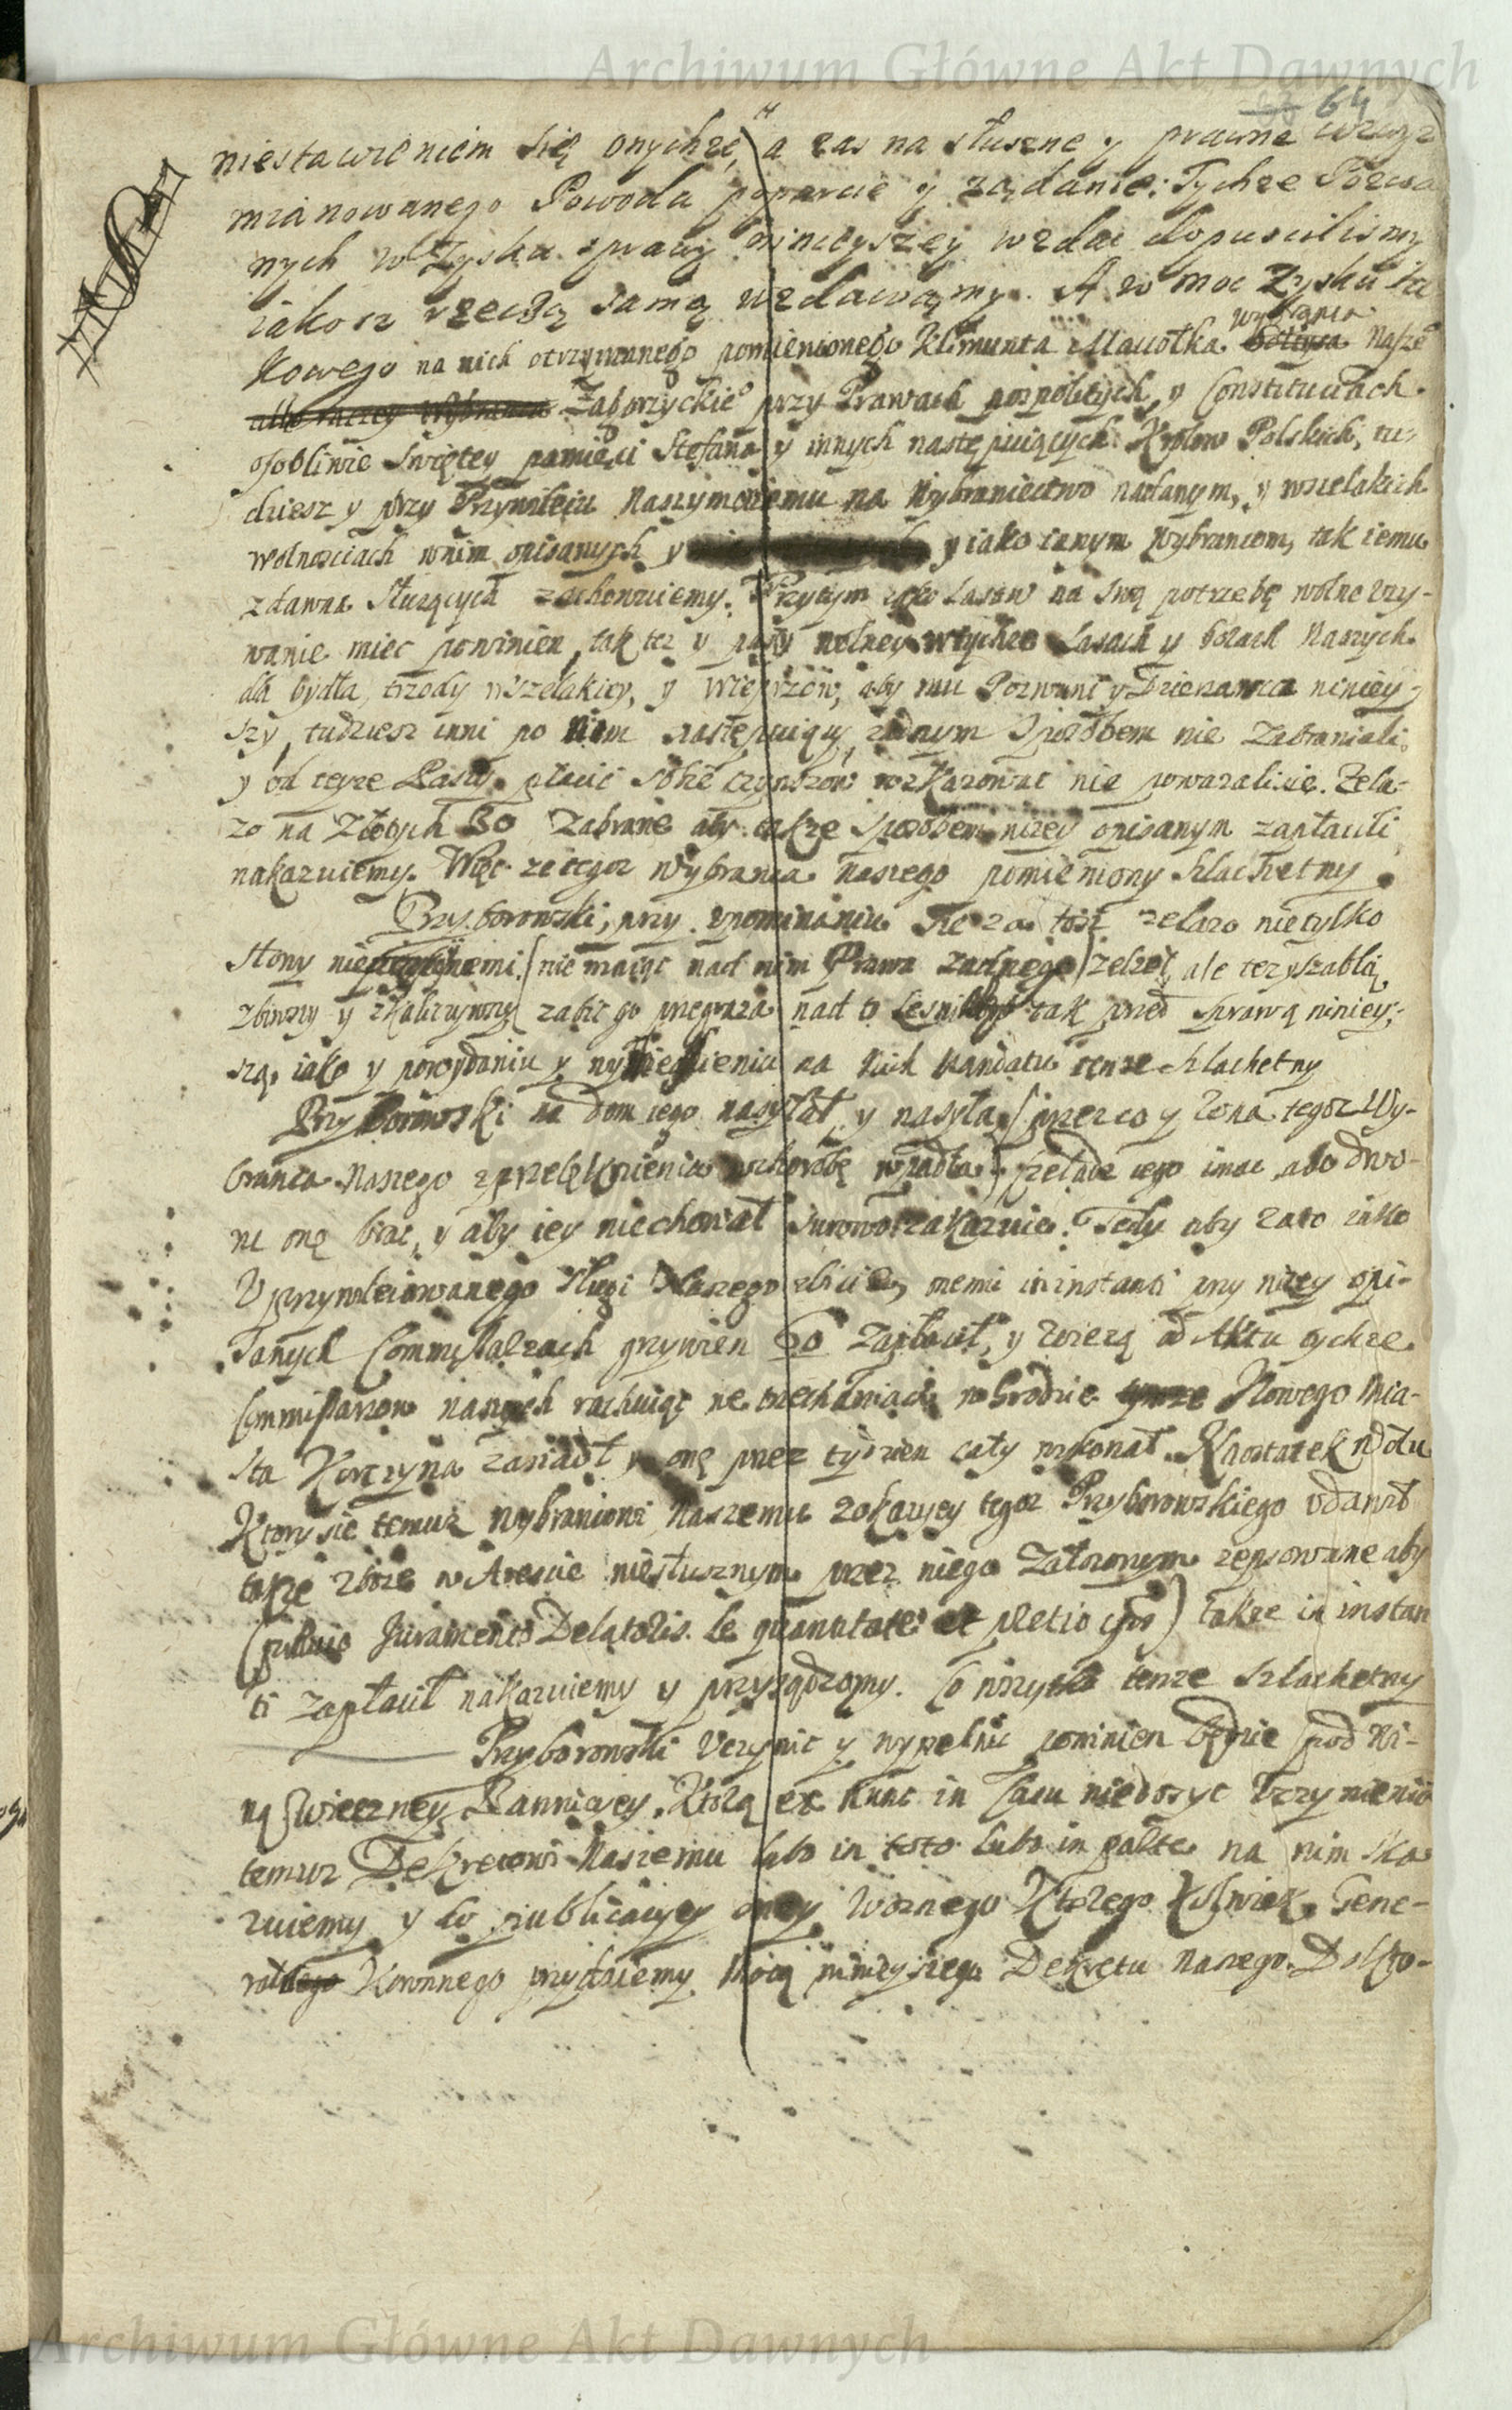 Archiwum Główne Akt Dawnych
64
niestawieniem się onychże, a zas na słuszne y prawne wzwyż
mianowanego Powoda poparcie y żądanie: Tychże Pozwa
nych w Zysku sprawy ninieyszey wzdać dopuscilismy
iakosz rzeczą samą wzdawamy. A w moc Zysku ta
kowego na nich otrzymanego pomienionego Klimunta Maciołka wybranca Nasze
Zaborzyckieo przy Prawach pospolitych y Constitucÿach
osobliwie Swiętey pamięci Stefana y innych nastepuiących Krolow Polskich, tu
dziesz y przy Przywileiu Naszym onemu na Wybraniectwo nadanym, y wszelakich
wolnosciach wnim opisanych y y iako innym wybrancom, tak iemu
zdawna służących zachowuiemy. Przytym iako Lasow na swą potrzebę wolne vzy-
wanie miec powinien, tak tez y pasy wolney wtychze Lasach y borach Naszych
dla bydła, trzody wszelakiey, y wieprzow, aby mu Pozwani y Dzierzawca niniey-
szy, tudziesz inni po nim nastepuiący zadnym sposobem nie zabraniali,
y od teyze Pasy płacic sobie czynszow wskazowac nie powazali sie. Zela-
zo na Złotych 30 Zabrane aby takze sposobem nizey opisanym zapłacili
nakazuiemy. Więc ze tegoz Wybranca naszego pomieniony szlachetny
Przyborowski, przy vpominaniu sie za tosz zelazo nietylko
słony (nie maiąc nad nim Prawa zadnego) zelzeł, ale tez y szablą
zbiwszy y zabic go pregraza nad to tak przed sprawą niniey-
szą, iako y powydaniu y na nich Mandatu tenze szlachetny
Przyborowski na dom iego nasyłał, y nasyła, (przez co y zona tegoz Wy-
branca Naszego zprzelęknienia wchorobę wpadła) czeladz iego imac, abo dwo-
ru onę brac, y aby iey niechował surowo zakazuie. Tedy aby zato iako
Vprzywileiowanego Sługi Naszego zbicie, memu in instanti przy nizey opi-
sanych Commissarzach grzywien 60 Zapłacił, y wiezą od Aktu tychze
Commissarzow naszych rachuiąc we trzech w Grodzie Nowego Mia-
sta Korczyna zasiadł y onę przez tydzien cały wykonał. Naostatek
Ktory sie temuz wybrancowi Naszemu zokazyey tegoz Przyborowskiego vdawił
takze zboze w Arescie niesłusznym przez niego Załozonym zepsowane aby
(praevio Juramento Delatoris de quantitate et pretio ) takze in instan
ti zapłacił nakazuiemy y przysądzamy. Co wszytko tenze Szlachetny
Przyborowski vczynic y wypełnic powinien będzie pod wi-
ną wieczney Banniciey, Ktorą ex nunc in Casu niedosyc vczynienia
temusz Dekretowi Naszemu lubo in toto lubo in parte na nim ska
zuiemy y do publicacyey oney Woznego Ktorego Kolwiek Gene-
ralnego Koronnego przydaiemy Mocą ninieyszego Dekretu Naszego. Do kto-
Archiwum Główne Akt Dawnych